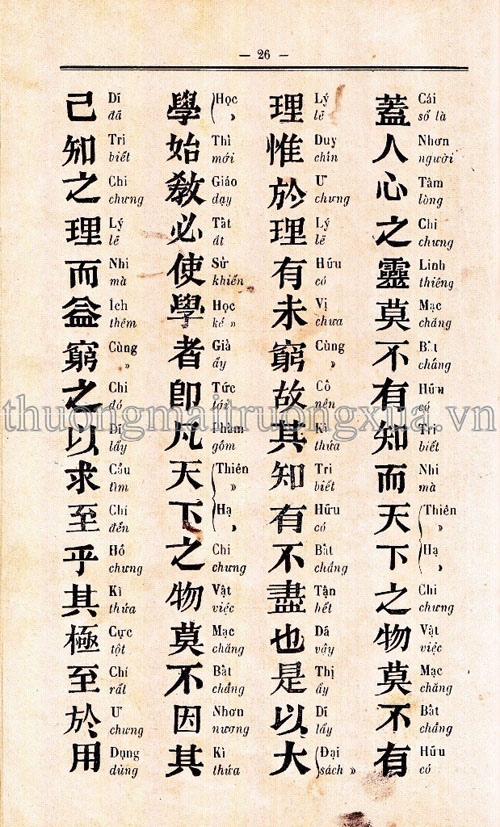 — 26 —
蓋 Cái sổ là
人 Nhơn người
心 Tâm lòng
之 Chi chưng
靈 Linh thiêng
莫 Mạc chẳng
不 Bất chẳng
有 Hữu có
知 Tri biết
而 Nhi mà
天 (Thiên »
下 (Hạ »
之 Chi chưng
物 Vật việc
莫 Mạc chăng
不 Bất chẳng
有 Hữu có
理 Lý lẽ
惟 Duy chín
於 Ư chưng
理 Lý lẽ
有 Hữu có
未 Vị chưa
窮 Cùng »
故 Cô nên
其 Kì thửa
知 Tri biết
有 Hữu có
不 Bất chẳng
盡 Tận hết
也 Dã vậy
是 Thị ấy
以 Dĩ lấy
大 (Đại sách »
學 (Học »
始 Thỉ mới
敎 Giáo dạy
必 Tất ắt
使 Sử khiến
學 Học kẻ »
者 Giả ấy
即 Tức tới
凡 Phàm gồm
天 (Thiên »
下 (Hạ »
之 Chi chưng
物 Vật việc
莫 Mạc chăng
不 Bất chẳng
因 Nhơn nương
其 Kì thửa
己 Dĩ đã
知 Tri biết
之 Chi chưng
理 Lý lẽ
而 Nhi mà
益 Ích thêm
窮 Cùng »
之 Chi đó
以 Dĩ lấy
求 Cầu tìm
至 Chí đến
乎 Hồ chưng
其 Kì thửa
極 Cực tột
至 Chí rất
於 Ư chưng
用 Dụng dùng
thuongmaitruongxua.vn